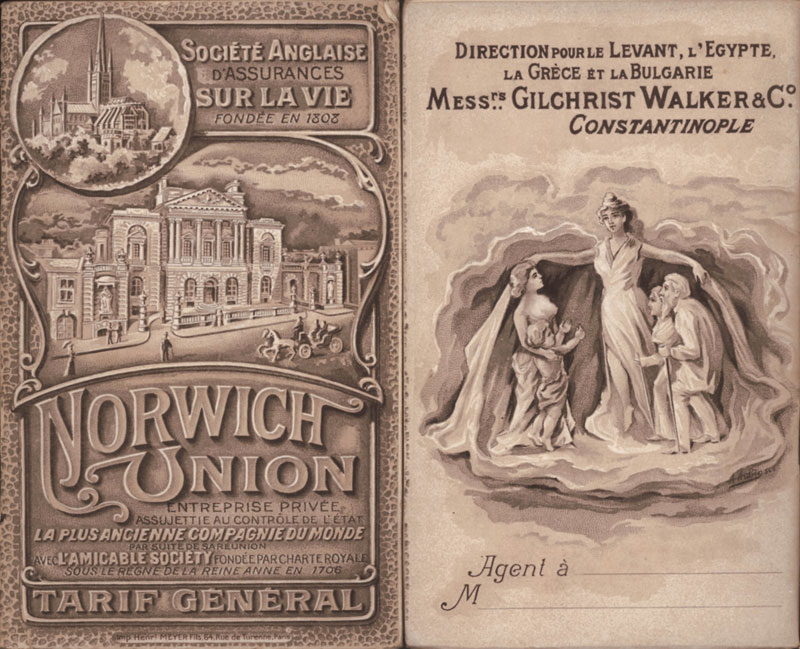 SOCIÉTÉ ANGLAISE
D'ASSURANCES
SUR LA VIE
FONDÉE EN 1808
NORWICH
UNION
ENTREPRISE PRIVÉE
ASSUJETTIE AU CONTRÔLE DE L'ÉTAT
LA PLUS ANCIENNE COMPAGNIE DU MONDE
PAR SUITE DE SA REUNION
AVEC L'AMICABLE SOCIETY FONDÉE PAR CHARTE ROYALE
SOUS LE REGNE DE LA REINE ANNE EN 1706
TARIF GÉNÉRAL
Imp. Henri MEYER Fils, 64, Rue de Turenne, Paris
DIRECTION POUR LE LEVANT, L'EGYPTE,
LA GRÈCE ET LA BULGARIE
MESSrs. GILCHRIST WALKER & Co.
CONSTANTINOPLE
Agent à
M